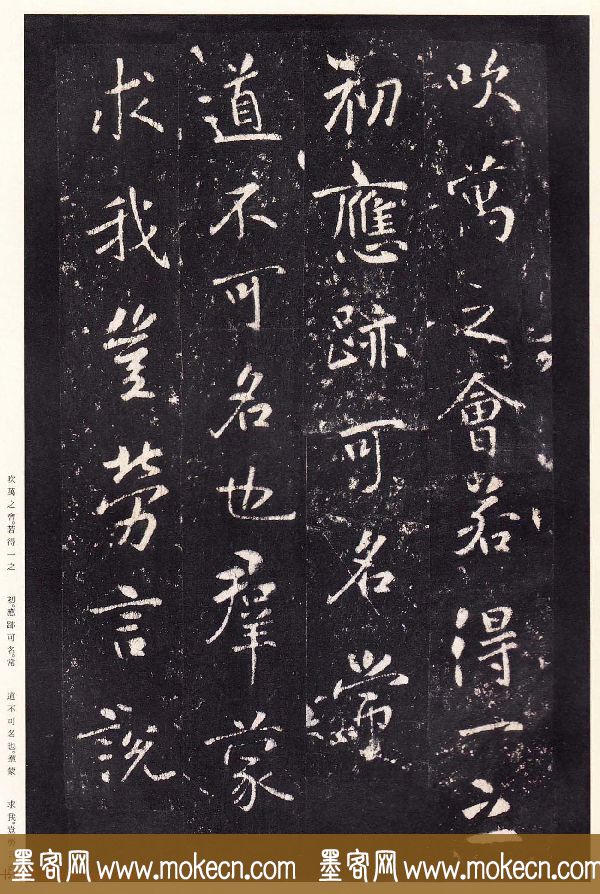 吹萬之會若得一之
初應跡可名常
道不可名也羣蒙
求我豈勞言說
吹萬之會。若得一之 初。應跡可名。常 道不可名也。羣蒙 求我。豈勞
墨客网 www.mokecn.com 墨客网 www.mokecn.com